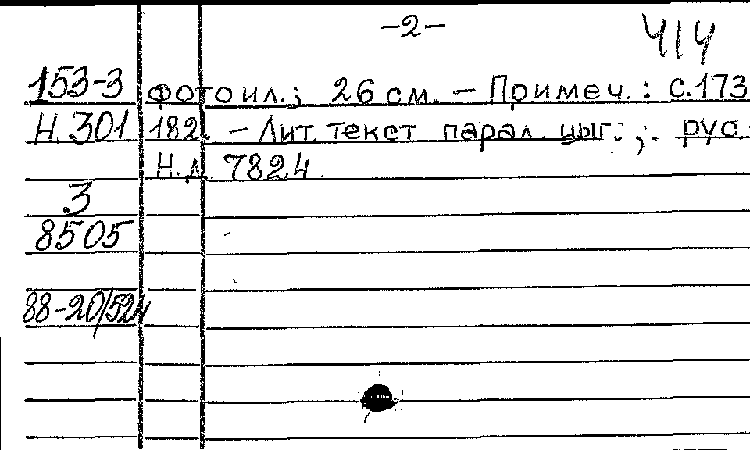 -2-
414
153-3 фотоил.; 26 см. - Примеч.: с.173
Н.301 182. - Лит. текст парал. цыг.; рус.
Н.д. 7824
3
8505
88-20/524